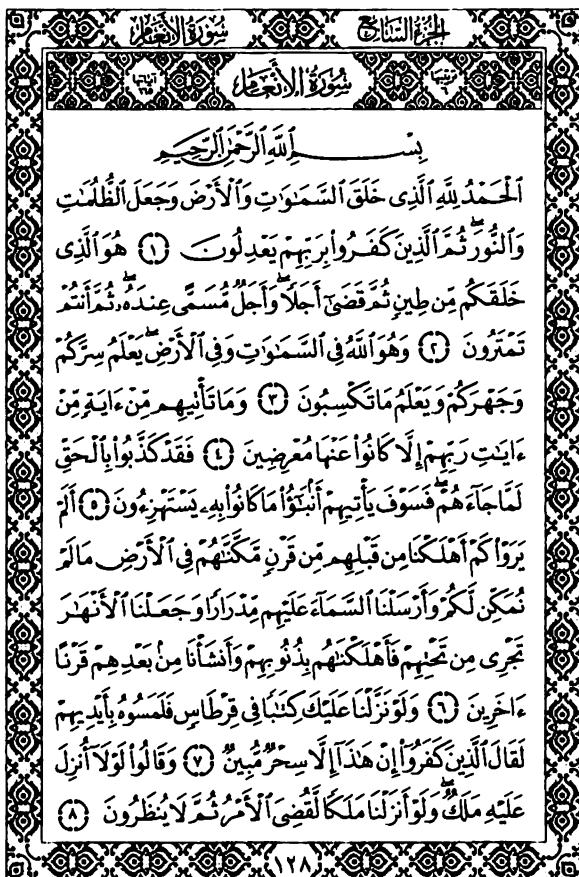 الجزء السابع
سورة الأنعام
ترتيبها ٦
سُورَةُ الأَنْعَامِ
آياتها ١٦٥
بِسْمِ ٱللَّهِ ٱلرَّحْمَٰنِ ٱلرَّحِيمِ
ٱلْحَمْدُ لِلَّهِ ٱلَّذِى خَلَقَ ٱلسَّمَٰوَٰتِ وَٱلْأَرْضَ وَجَعَلَ ٱلظُّلُمَٰتِ
وَٱلنُّورَ ۖ ثُمَّ ٱلَّذِينَ كَفَرُوا۟ بِرَبِّهِمْ يَعْدِلُونَ ﴿١﴾ هُوَ ٱلَّذِى
خَلَقَكُم مِّن طِينٍ ثُمَّ قَضَىٰٓ أَجَلًا ۖ وَأَجَلٌ مُّسَمًّى عِندَهُۥ ۖ ثُمَّ أَنتُمْ
تَمْتَرُونَ ﴿٢﴾ وَهُوَ ٱللَّهُ فِى ٱلسَّمَٰوَٰتِ وَفِى ٱلْأَرْضِ ۖ يَعْلَمُ سِرَّكُمْ
وَجَهْرَكُمْ وَيَعْلَمُ مَا تَكْسِبُونَ ﴿٣﴾ وَمَا تَأْتِيهِم مِّنْ ءَايَةٍ مِّنْ
ءَايَٰتِ رَبِّهِمْ إِلَّا كَانُوا۟ عَنْهَا مُعْرِضِينَ ﴿٤﴾ فَقَدْ كَذَّبُوا۟ بِٱلْحَقِّ
لَمَّا جَآءَهُمْ ۖ فَسَوْفَ يَأْتِيهِمْ أَنۢبَٰٓؤُا۟ مَا كَانُوا۟ بِهِۦ يَسْتَهْزِءُونَ ﴿٥﴾ أَلَمْ
يَرَوْا۟ كَمْ أَهْلَكْنَا مِن قَبْلِهِم مِّن قَرْنٍ مَّكَّنَّٰهُمْ فِى ٱلْأَرْضِ مَا لَمْ
نُمَكِّن لَّكُمْ وَأَرْسَلْنَا ٱلسَّمَآءَ عَلَيْهِم مِّدْرَارًا وَجَعَلْنَا ٱلْأَنْهَٰرَ
تَجْرِى مِن تَحْتِهِمْ فَأَهْلَكْنَٰهُم بِذُنُوبِهِمْ وَأَنشَأْنَا مِنۢ بَعْدِهِمْ قَرْنًا
ءَاخَرِينَ ﴿٦﴾ وَلَوْ نَزَّلْنَا عَلَيْكَ كِتَٰبًا فِى قِرْطَاسٍ فَلَمَسُوهُ بِأَيْدِيهِمْ
لَقَالَ ٱلَّذِينَ كَفَرُوٓا۟ إِنْ هَٰذَآ إِلَّا سِحْرٌ مُّبِينٌ ﴿٧﴾ وَقَالُوا۟ لَوْلَآ أُنزِلَ
عَلَيْهِ مَلَكٌ ۖ وَلَوْ أَنزَلْنَا مَلَكًا لَّقُضِىَ ٱلْأَمْرُ ثُمَّ لَا يُنظَرُونَ ﴿٨﴾
١٢٨